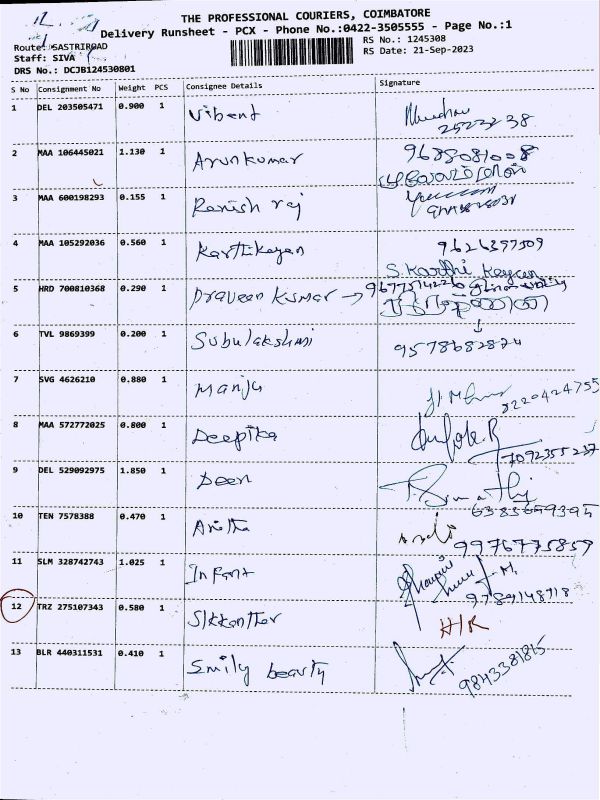 THE PROFESSIONAL COURIERS, COIMBATORE
Delivery Runsheet - PCX - Phone No.:0422-3505555 - Page No.:1
Route: SASTRIROAD
RS No.: 1245308
Staff: SIVA
RS Date: 21-Sep-2023
DRS No.: DCJB124530801
S No Consignment No Weight PCS Consignee Details Signature
1 DEL 203505471 0.900 1 Vibent
2 MAA 106445021 1.130 1 Arunkumar 9688081008
3 MAA 600198293 0.155 1 Ranish raj
4 MAA 105292036 0.560 1 Karthikeyan 9626397309
S. Karthi Keyan
5 HRD 700810368 0.290 1 Praveen Kumar →
6 TVL 9869399 0.200 1 Subulakshmi 9578682874
7 SVG 4626210 0.880 1 Manju 8220424755
8 MAA 572772025 0.800 1 Deepika
7092355237
9 DEL 529092975 1.850 1 Deen
6385659395
10 TEN 7578388 0.470 1 Anitha
9976775859
11 SLM 328742743 1.025 1 Infant
9789148918
12 TRZ 275107343 0.580 1 Sikkanther H/R
13 BLR 440311531 0.410 1 Smily beauty 9843381815